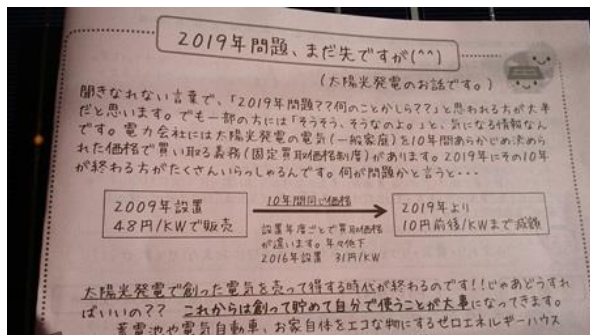 2019年問題、まだ先ですが(^^)
(太陽光発電のお話です。)
聞きなれない言葉で、「2019年問題??何のことかしら??」と思われる方が大半
だと思います。でも一部の方には「そうそう、そうなのよ。」と、気になる情報なん
です。電力会社には太陽光発電の電気(一般家庭)を10年間あらかじめ決めら
れた価格で買い取る義務(固定買取価格制度)があります。2019年にその10年
が終わる方がたくさんいらっしゃるんです。何が問題かと言うと・・・
2009年設置
48円/KWで販売
10年間同じ価格
設置年度ごとで買取価格
が違います。年々低下
2016年設置 31円/KW
2019年より
10円前後/KWまで減額
太陽光発電で創った電気を売って得する時代が終わるのです!!じゃあどうすれ
ばいいの?? これからは創って貯めて自分で使うことが大事になってきます。
蓄電池や電気自動車、お家自体をエコな物にするゼロエネルギーハウス